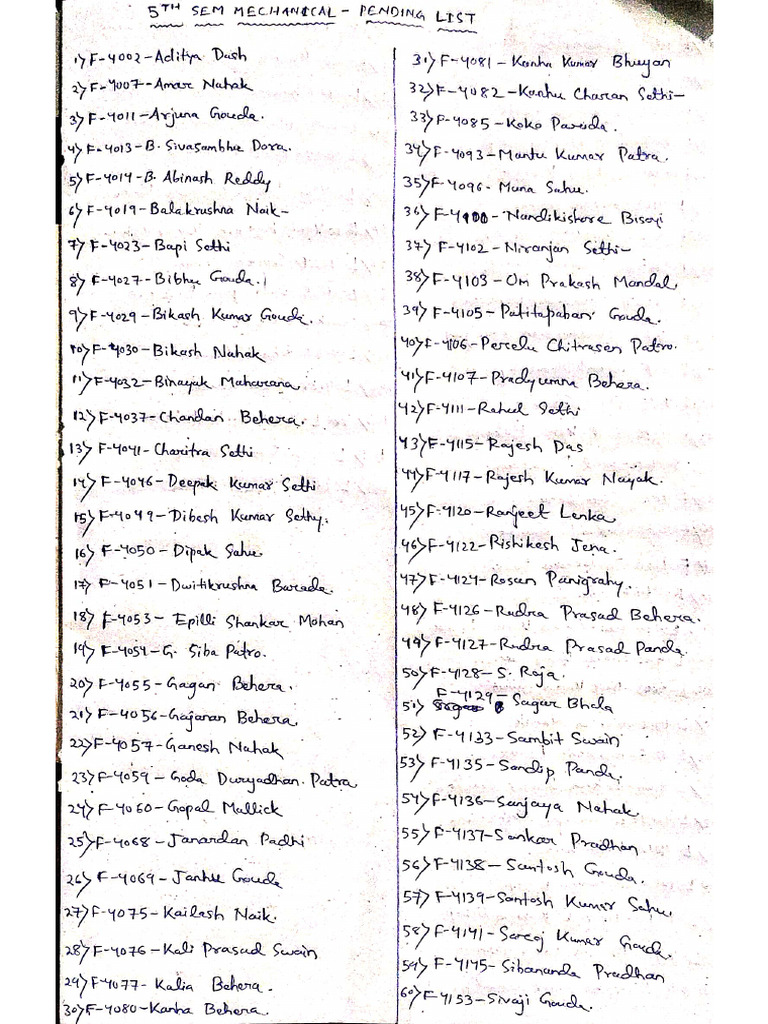 5TH SEM MECHANICAL - PENDING LIST
1) F-4002-Aditya Dash
2) F-4007-Amar Nahak
3) F-4011-Arjuna Gouda.
4) F-4013-B. Sivasambhu Dora.
5) F-4014-B. Abinash Reddy
6) F-4019-Balakrushna Naik-
7) F-4023-Bapi Sethi
8) F-4027-Bibhu Gouda.
9) F-4029-Bikash Kumar Gouda.
10) F-4030-Bikash Nahak
11) F-4032-Binayak Maharana
12) F-4037-Chandan Behera.
13) F-4041-Charitra Sethi
14) F-4046-Deepak Kumar Sethi
15) F-4049-Dibesh Kumar Sethy.
16) F-4050-Dipak Sahu.
17) F-4051-Dwitikrushna Barada.
18) F-4053-Epilli Shankar Mohan
19) F-4054-G. Siba Patro.
20) F-4055-Gagan Behera.
21) F-4056-Gajanan Behera
22) F-4057-Ganesh Nahak
23) F-4059-Goda Duryadhan Patra
24) F-4060-Gopal Mallick
25) F-4068-Janardan Padhi
26) F-4069-Janhu Gouda
27) F-4075-Kailash Naik.
28) F-4076-Kali Prasad Swain
29) F-4077-Kalia Behera.
30) F-4080-Kanha Behera.
31) F-4081-Kanha Kumar Bhuyan
32) F-4082-Kanhu Charan Sethi-
33) F-4085-Koko Parida.
34) F-4093-Mantu Kumar Patra.
35) F-4096-Muna Sahu.
36) F-4100-Nandikishore Bisoyi
37) F-4102-Niranjan Sethi-
38) F-4103-Om Prakash Mandal
39) F-4105-Patitapaban Gouda.
40) F-4106-Percelu Chitrasen Patro.
41) F-4107-Pradyumna Behera.
42) F-4111-Rahul Sethi
43) F-4115-Rajesh Das
44) F-4117-Rajesh Kumar Nayak.
45) F-4120-Ranjeet Lenka
46) F-4122-Rishikesh Jena.
47) F-4124-Rosan Panigrahy.
48) F-4126-Rudra Prasad Behera.
49) F-4127-Rudra Prasad Panda.
50) F-4128-S. Raja.
51) F-4129-Sagar Bhola
52) F-4133-Sambit Swain
53) F-4135-Sandip Panda.
54) F-4136-Sanjaya Nahak
55) F-4137-Sankar Pradhan
56) F-4138-Santosh Gouda.
57) F-4139-Santosh Kumar Sahu.
58) F-4141-Saroj Kumar Gouda.
59) F-4145-Sibananda Pradhan
60) F-4153-Sivaji Gouda.